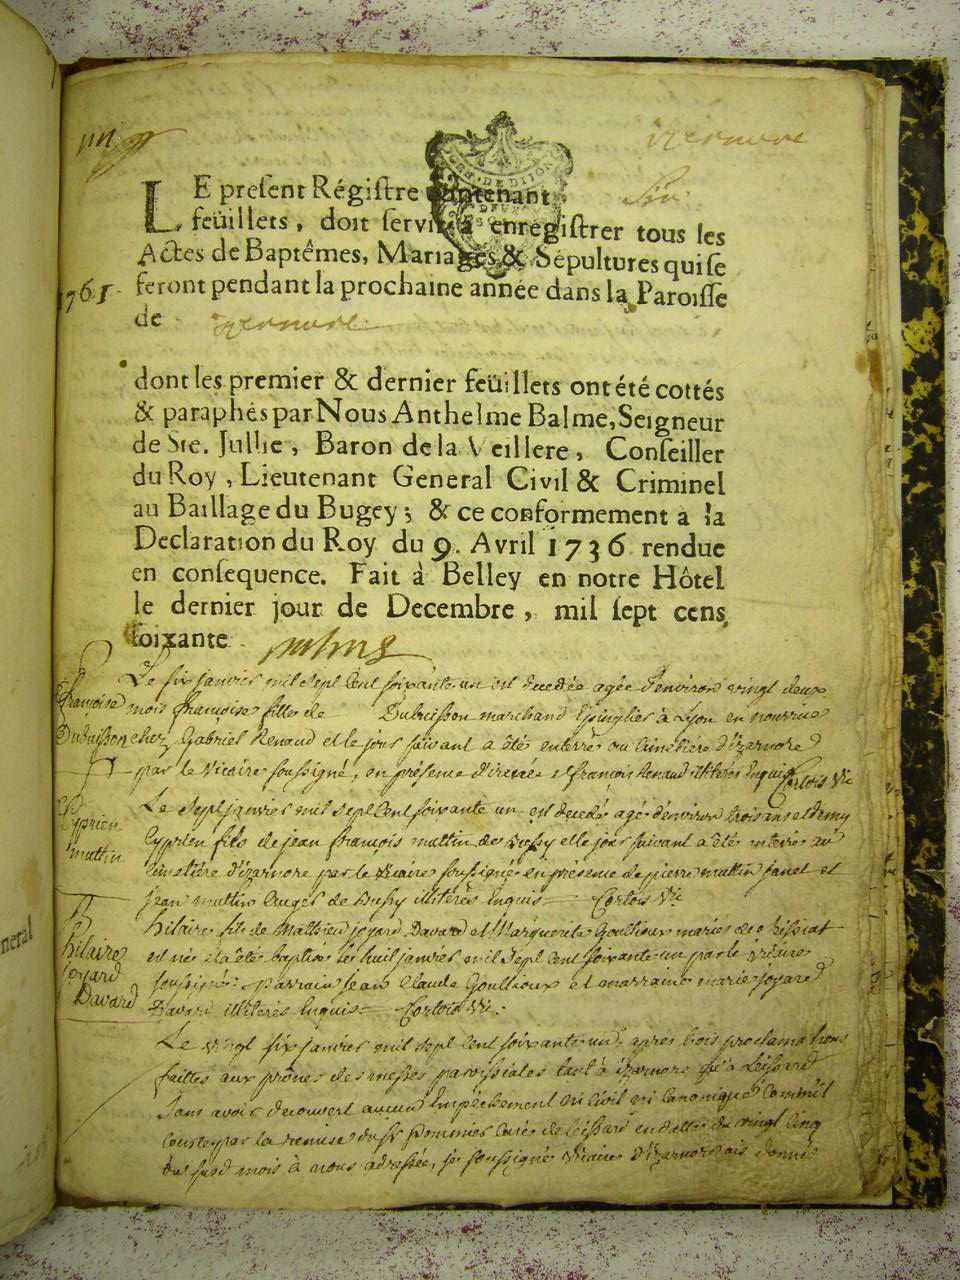 izernore
LE present Régistre contenant Six
feüillets, doit servir à enrégistrer tous les
Actes de Baptêmes, Mariages & Sépultures qui se
1761. feront pendant la prochaine année dans la Paroisse
de izernore
dont les premier & dernier feüillets ont été cottés
& paraphés par Nous Anthelme Balme, Seigneur
de Ste. Jullie, Baron de la Veillere, Conseiller
du Roy, Lieutenant General Civil & Criminel
au Baillage du Bugey; & ce conformement a la
Declaration du Roy du 9. Avril 1736 rendue
en consequence. Fait à Belley en notre Hôtel
le dernier jour de Decembre, mil sept cens
soixante.
Françoise
Dubuisson
Le six janvier mil sept cent soixante un est decedée agée d'environ vingt deux
mois françoise fille de Dubuisson marchand Epinglier à Lyon en nourrice
chez Gabriel Renaud et le jour suivant a été enterré au cimetière d'izernore
par le Vicaire soussigné, en présence et françois Renaud illiterés Enquis Cortois Vic
Cyprien
mattin
Le sept janvier mil sept cent soixante un est decedé agé d'environ trois ans et demy
Cyprien fils de jean françois mattin de Bussy et le jour suivant a été interré au
cimetière d'izernore par le Vicaire soussigné en présence de pierre mattin janet et
jean mattin Auger de Bussy illiterés Enquis Cortois Vic
hilaire
joyard
Davard
hilaire fils de Mathieu joyard Davard et Marguerite Goullioux mariés de
est né et a été baptisé le huit janvier mil sept cent soixante un par le Vicaire
soussigné: Parrain jean Claude Goullioux et marraine marie joyard
Davard illiterés Enquis Cortois Vic:
Le vingt six janvier mil sept cent soixante un, après trois proclamations
faittes aux prônes des messes paroissiales tant à izernore qu'à Leissard
sans avoir decouvert aucun Empêchement ni civil ni canonique comme il
conste par la remise du Sr pommier curé de Leissard en datte du vingt cinq
du susd mois à nous adressée, je soussigné Vicaire d'izernore ais donné
neral